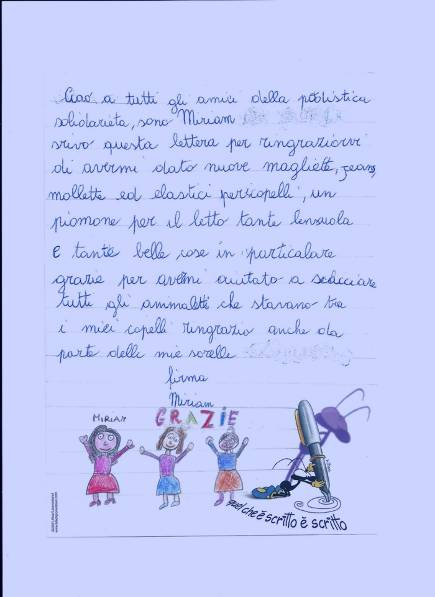 Ciao a tutti gli amici della podistica
solidarietà, sono Miriam
srivo questa lettera per ringraziarvi
di avermi dato nuove magliette, jeans,
mollette ed elastici per capelli, un
piomone per il letto tante lensuola
E tante belle cose in particolare
grazie per avermi aiutato a scacciare
tutti gli animaletti che stavano tra
i miei capelli ringrazio anche da
parte delle mie sorelle
firma
Miriam
MIRIAM GRAZIE
quel che è scritto è scritto